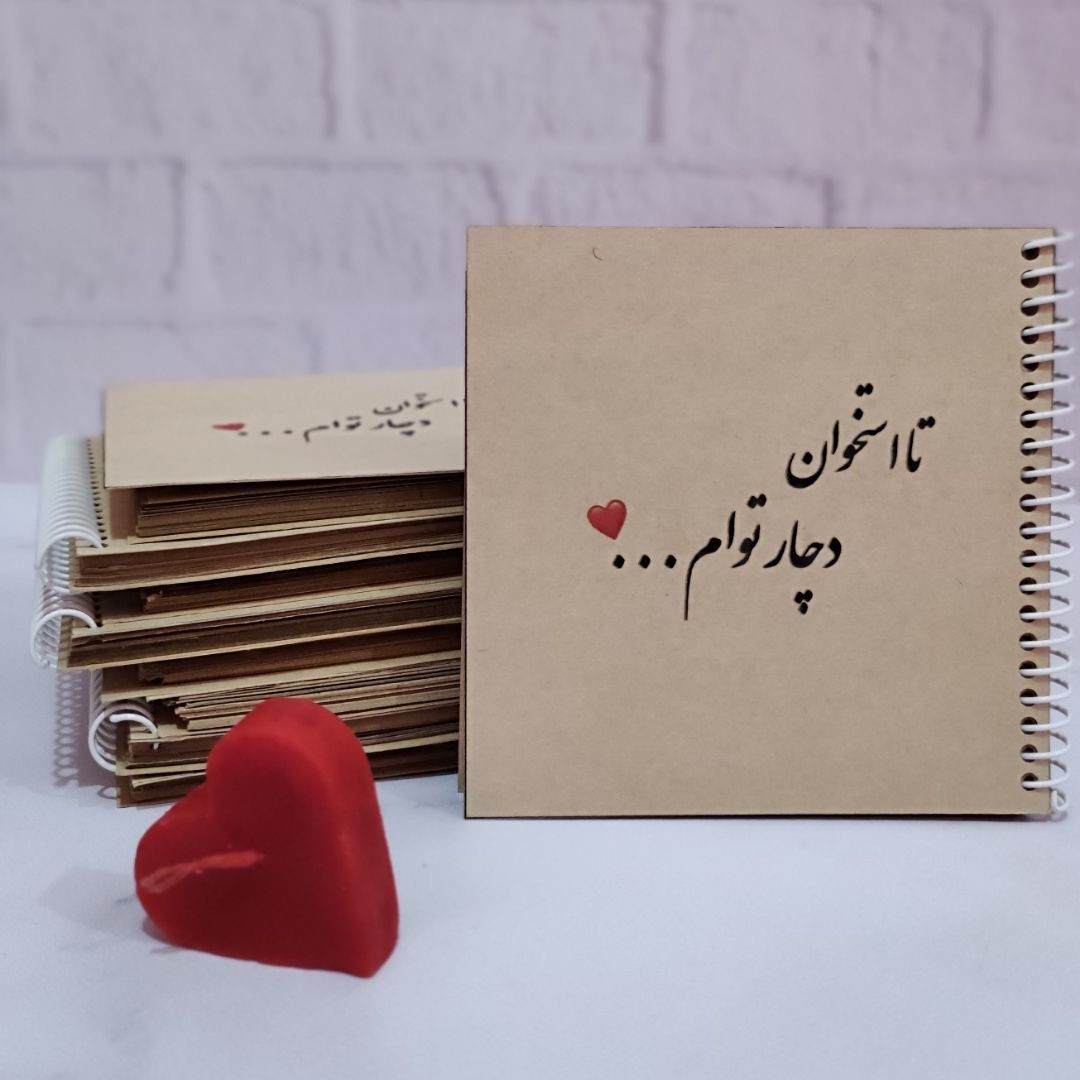 تا استخوان
دچار توام...❤️
استخوان
دچار توام...❤️